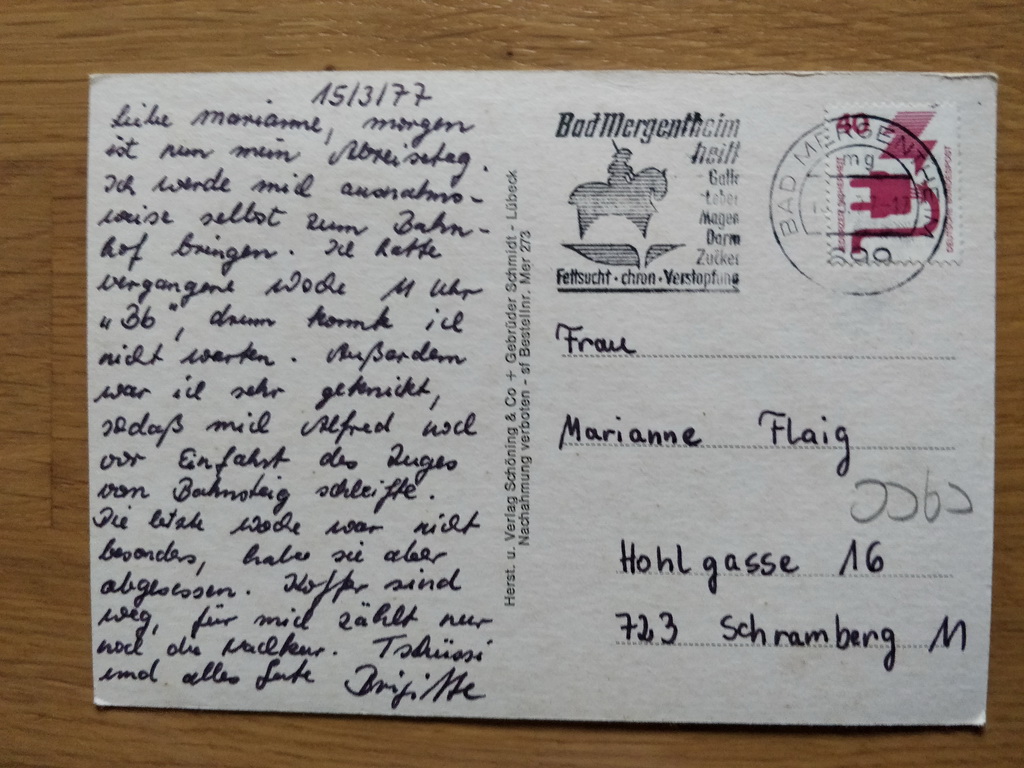 15/3/77
Liebe Marianne, morgen
ist nun mein Abreisetag.
Ich werde mich ausnahms-
weise selbst zum Bahn-
hof bringen. Ich hatte
vergangene Woche 11 Uhr
"Bb", drum konnte ich
nicht warten. Außerdem
war ich sehr geknickt,
sodaß mich Alfred noch
vor Einfahrt des Zuges
vom Bahnsteig schleifte.
Die letzte Woche war nicht
besonders, habe sie aber
abgesessen. Koffer sind
weg, für mich zählt nur
noch die Nachkur. Tschüssi
und alles Gute Brigitte
Herst. u. Verlag Schöning & Co + Gebrüder Schmidt - Lübeck
Nachahmung verboten - sf Bestellnr. Mer 273
Bad Mergentheim
heilt
Galle
Leber
Magen
Darm
Zucker
Fettsucht · chron · Verstopfung
BAD MERGENTHEIM
mg
40
DEUTSCHE BUNDESPOST
Frau
Marianne Flaig
Hohlgasse 16
723 Schramberg 11